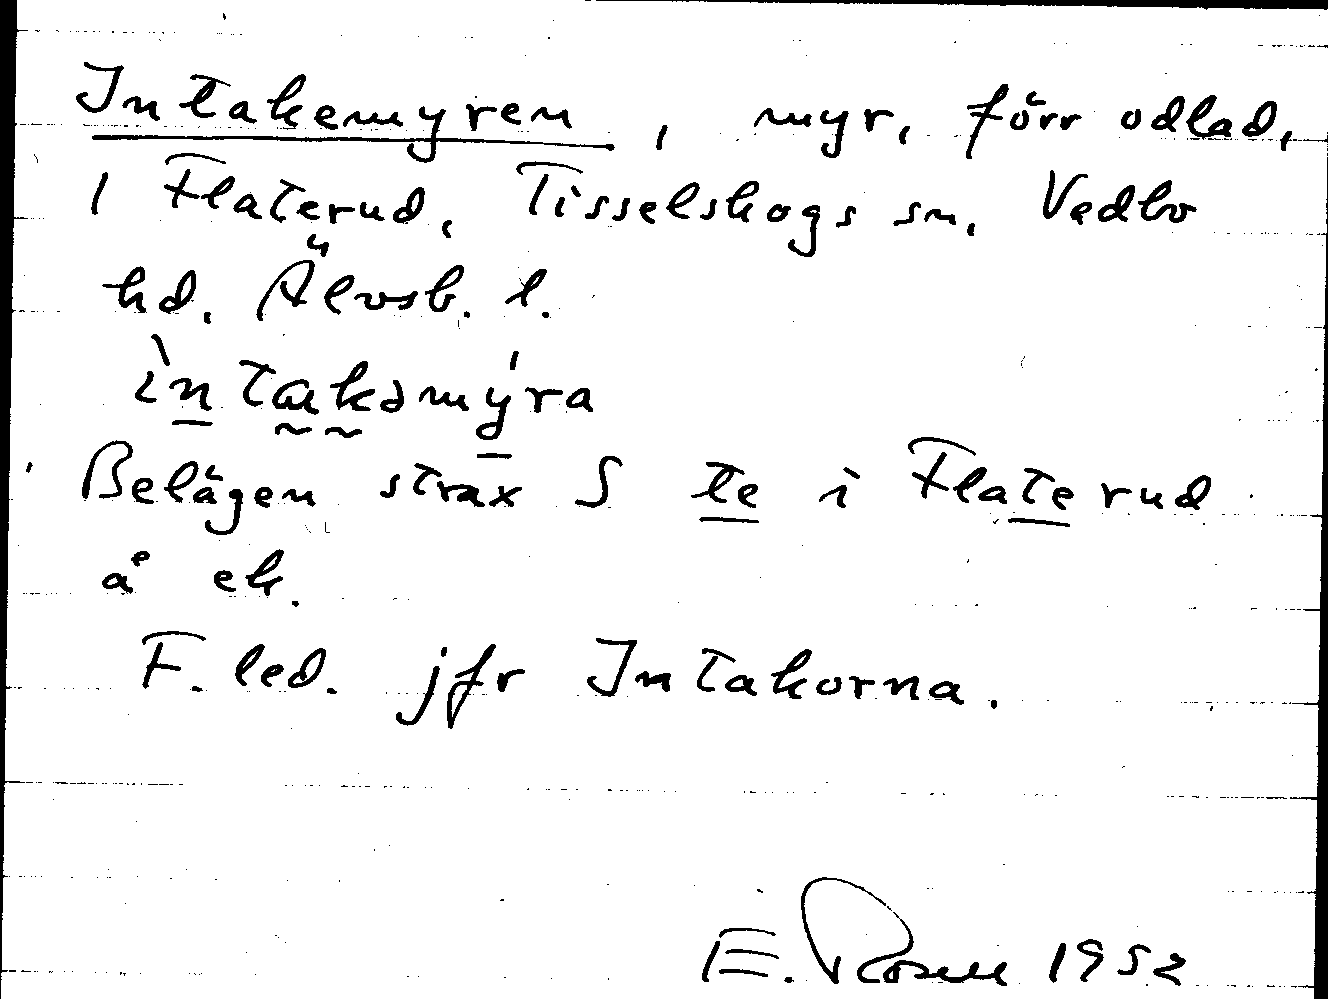 Intakemyren, myr, förr odlad,
i Flaterud, Tisselskogs sn, Vedbo
hd. Älvsb. l.
ìntakəmýra
Belägen strax S te i Flaterud
å ek.
F. led. jfr Intakorna.
E. Rosell 1952